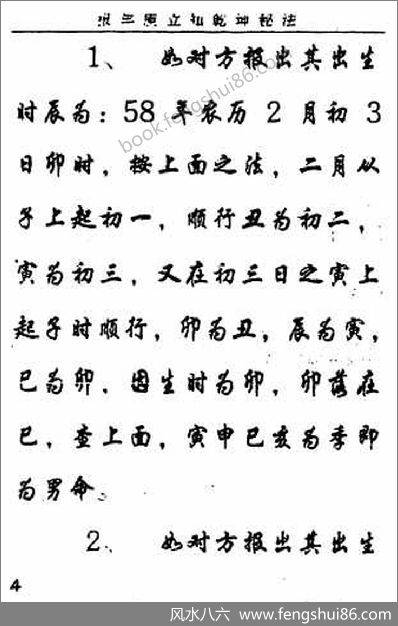 报三项立知乾坤秘法
1、 如对方报出其出生
时辰为：58 年农历 2 月初 3
日卯时，按上面之法，二月从
子上起初一，顺行丑为初二，
寅为初三，又在初三日之寅上
起子时顺行，卯为丑，辰为寅，
巳为卯．因生时为卯，卯落在
巳，查上面，寅申巳亥为季即
为男命。
2、 如对方报出其出生
4
book.fengshui86.com
风水八六 www.fengshui86.com